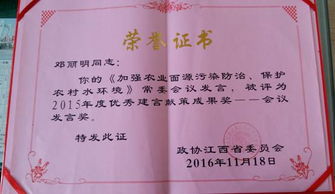 荣誉证书
邓丽明同志：
你的《加强农业面源污染防治、保护
农村水环境》常委会议发言，被评为
2015年度优秀建言献策成果奖——会议
发言奖。
特发此证
政协江西省委员会
2016年11月18日